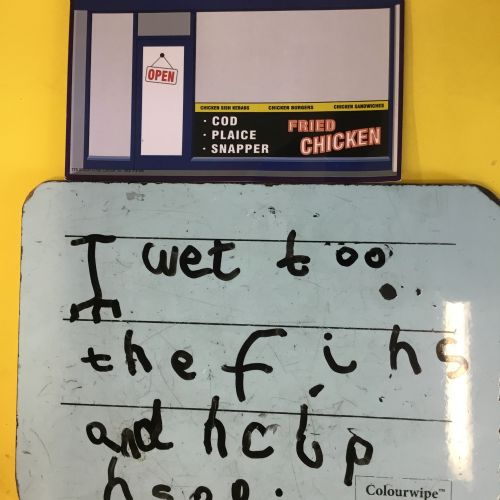 OPEN
CHICKEN SISH KEBABS CHICKEN BURGERS CHICKEN SANDWICHES
· COD
· PLAICE
· SNAPPER
FRIED
CHICKEN
I wet too
the fihs
and
Colourwipe™